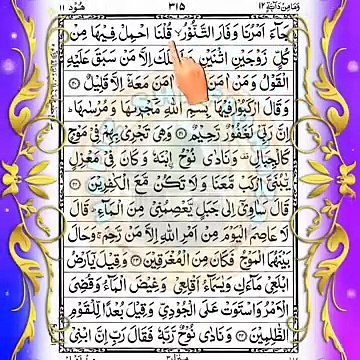 وَمَا مِنْ دَآبَّةٍ ١٢ ٣١٥ هُوْد ١١
جَآءَ اَمْرُنَا وَفَارَ التَّنُّوْرُ ۙ قُلْنَا احْمِلْ فِيْهَا مِنْ
كُلٍّ زَوْجَيْنِ اثْنَيْنِ وَاَهْلَكَ اِلَّا مَنْ سَبَقَ عَلَيْهِ
الْقَوْلُ وَمَنْ اٰمَنَ ؕ اٰمَنَ مَعَهٗۤ اِلَّا قَلِيْلٌ ۝
وَقَالَ ارْكَبُوْا فِيْهَا بِسْمِ اللّٰهِ مَجْرٖىهَا وَمُرْسٰىهَا ؕ
اِنَّ رَبِّيْ لَغَفُوْرٌ رَّحِيْمٌ ۝ وَهِيَ تَجْرِيْ بِهِمْ فِيْ مَوْجٍ
كَالْجِبَالِ ۟ وَنَادٰى نُوْحُ ۨابْنَهٗ وَكَانَ فِيْ مَعْزِلٍ
يّٰبُنَيَّ ارْكَبْ مَّعَنَا وَلَا تَكُنْ مَّعَ الْكٰفِرِيْنَ ۝
قَالَ سَاٰوِيْۤ اِلٰى جَبَلٍ يَّعْصِمُنِيْ مِنَ الْمَآءِ ؕ قَالَ
لَا عَاصِمَ الْيَوْمَ مِنْ اَمْرِ اللّٰهِ اِلَّا مَنْ رَّحِمَ ۚ وَحَالَ
بَيْنَهُمَا الْمَوْجُ فَكَانَ مِنَ الْمُغْرَقِيْنَ ۝ وَقِيْلَ يٰۤاَرْضُ
ابْلَعِيْ مَآءَكِ وَيٰسَمَآءُ اَقْلِعِيْ وَغِيْضَ الْمَآءُ وَقُضِيَ
الْاَمْرُ وَاسْتَوَتْ عَلَى الْجُوْدِيِّ وَقِيْلَ بُعْدًا لِّلْقَوْمِ
الظّٰلِمِيْنَ ۝ وَنَادٰى نُوْحٌ رَّبَّهٗ فَقَالَ رَبِّ اِنَّ ابْنِيْ